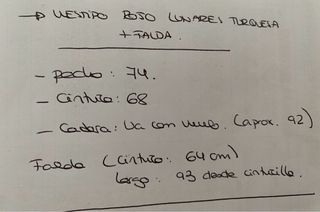 → VESTIDO ROJO LUNARES TURQUESA
+ FALDA.
- pecho: 74.
- Cintura: 68
- Cadera: Va con vuelo. (aprox. 92)
Falda (Cintura: 64cm)
largo: 93 desde cinturilla.